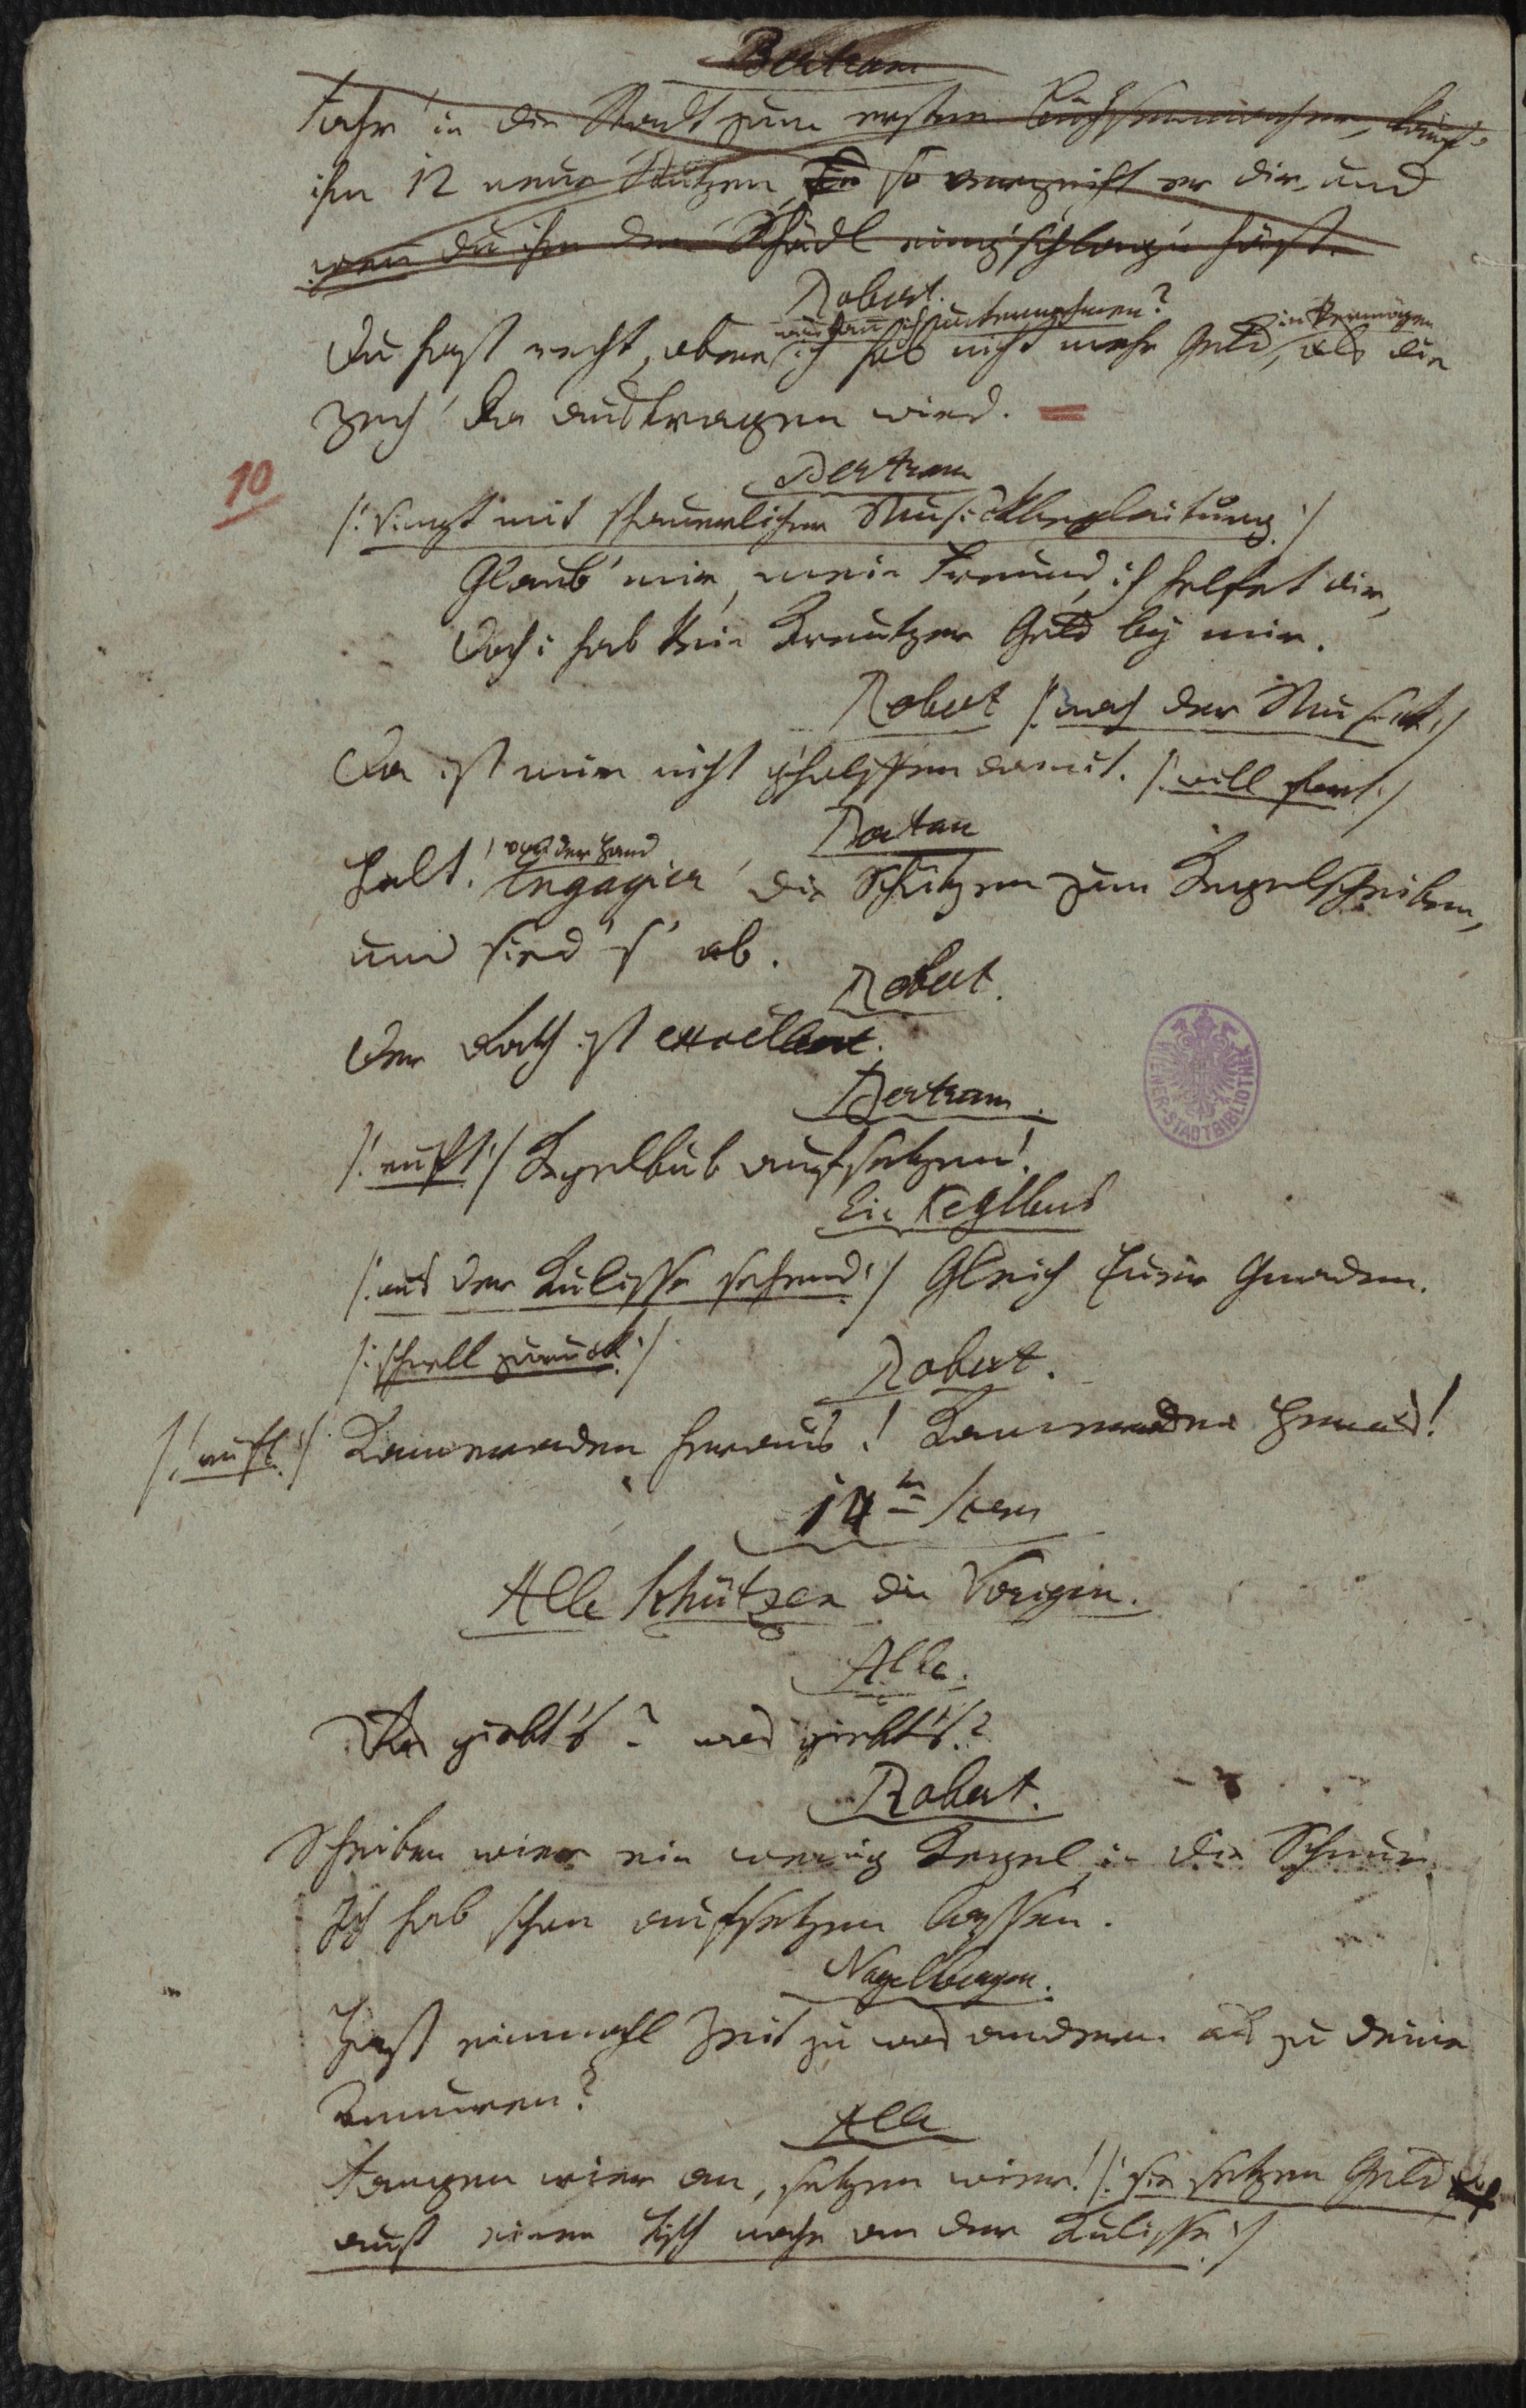 Bertram
Fahr' in die Stadt zum ersten Büchsenmacher, kauf'
ihm 12 neue Stutzen, so vergift er dir, und
wenn du ihm den Schädl eing'schlag'n häst.
Robert.
was kann ich unternehmen? in Vermögen
Du hast recht, aber ich hab nicht mehr Geld, als die
Zech' da austragen wird. =
Bertram
10
/: singt mit schauerlicher Musickbegleitung :/
Glaub' mir, mein Freund, ich helfet dir,
Doch i hab kein Kreutzer Geld bey mir.
Robert /: nach der Musick :/
Da ist mir nicht g'holffen damit. /: will fort :/
Bertram
Halt! vor der Hand
Engagier' die Schützen zum Kegelscheiben,
und sied s' ab.
Robert.
Der Rath ist excellent.
Bertram.
/: ruft :/ Kegelbub aufsetzen!
Ein Keglbub
/: aus der Kulisse sehend :/ Gleich Euer Gnaden.
/: schnell zurück :/
Robert.
/: ruft :/ Kammeraden heraus! Kammeraden heraus!
14te Scene
Alle Schützen die Vorigen.
Alle.
Was giebt's? was giebt's?
Robert.
Scheiben wier ein wenig Kegel in die Schnur.
Ich hab schon aufsetzen lassen.
Nagelberger.
Hast einmahl Zeit zu was anderen als zu deine
Amuren?
Alle
Fangen wier an, setzen wier! /: sie setzen Geld
auf einen Tisch nahe an der Kulisse :/
WIENER-STADTBIBLIOTHEK